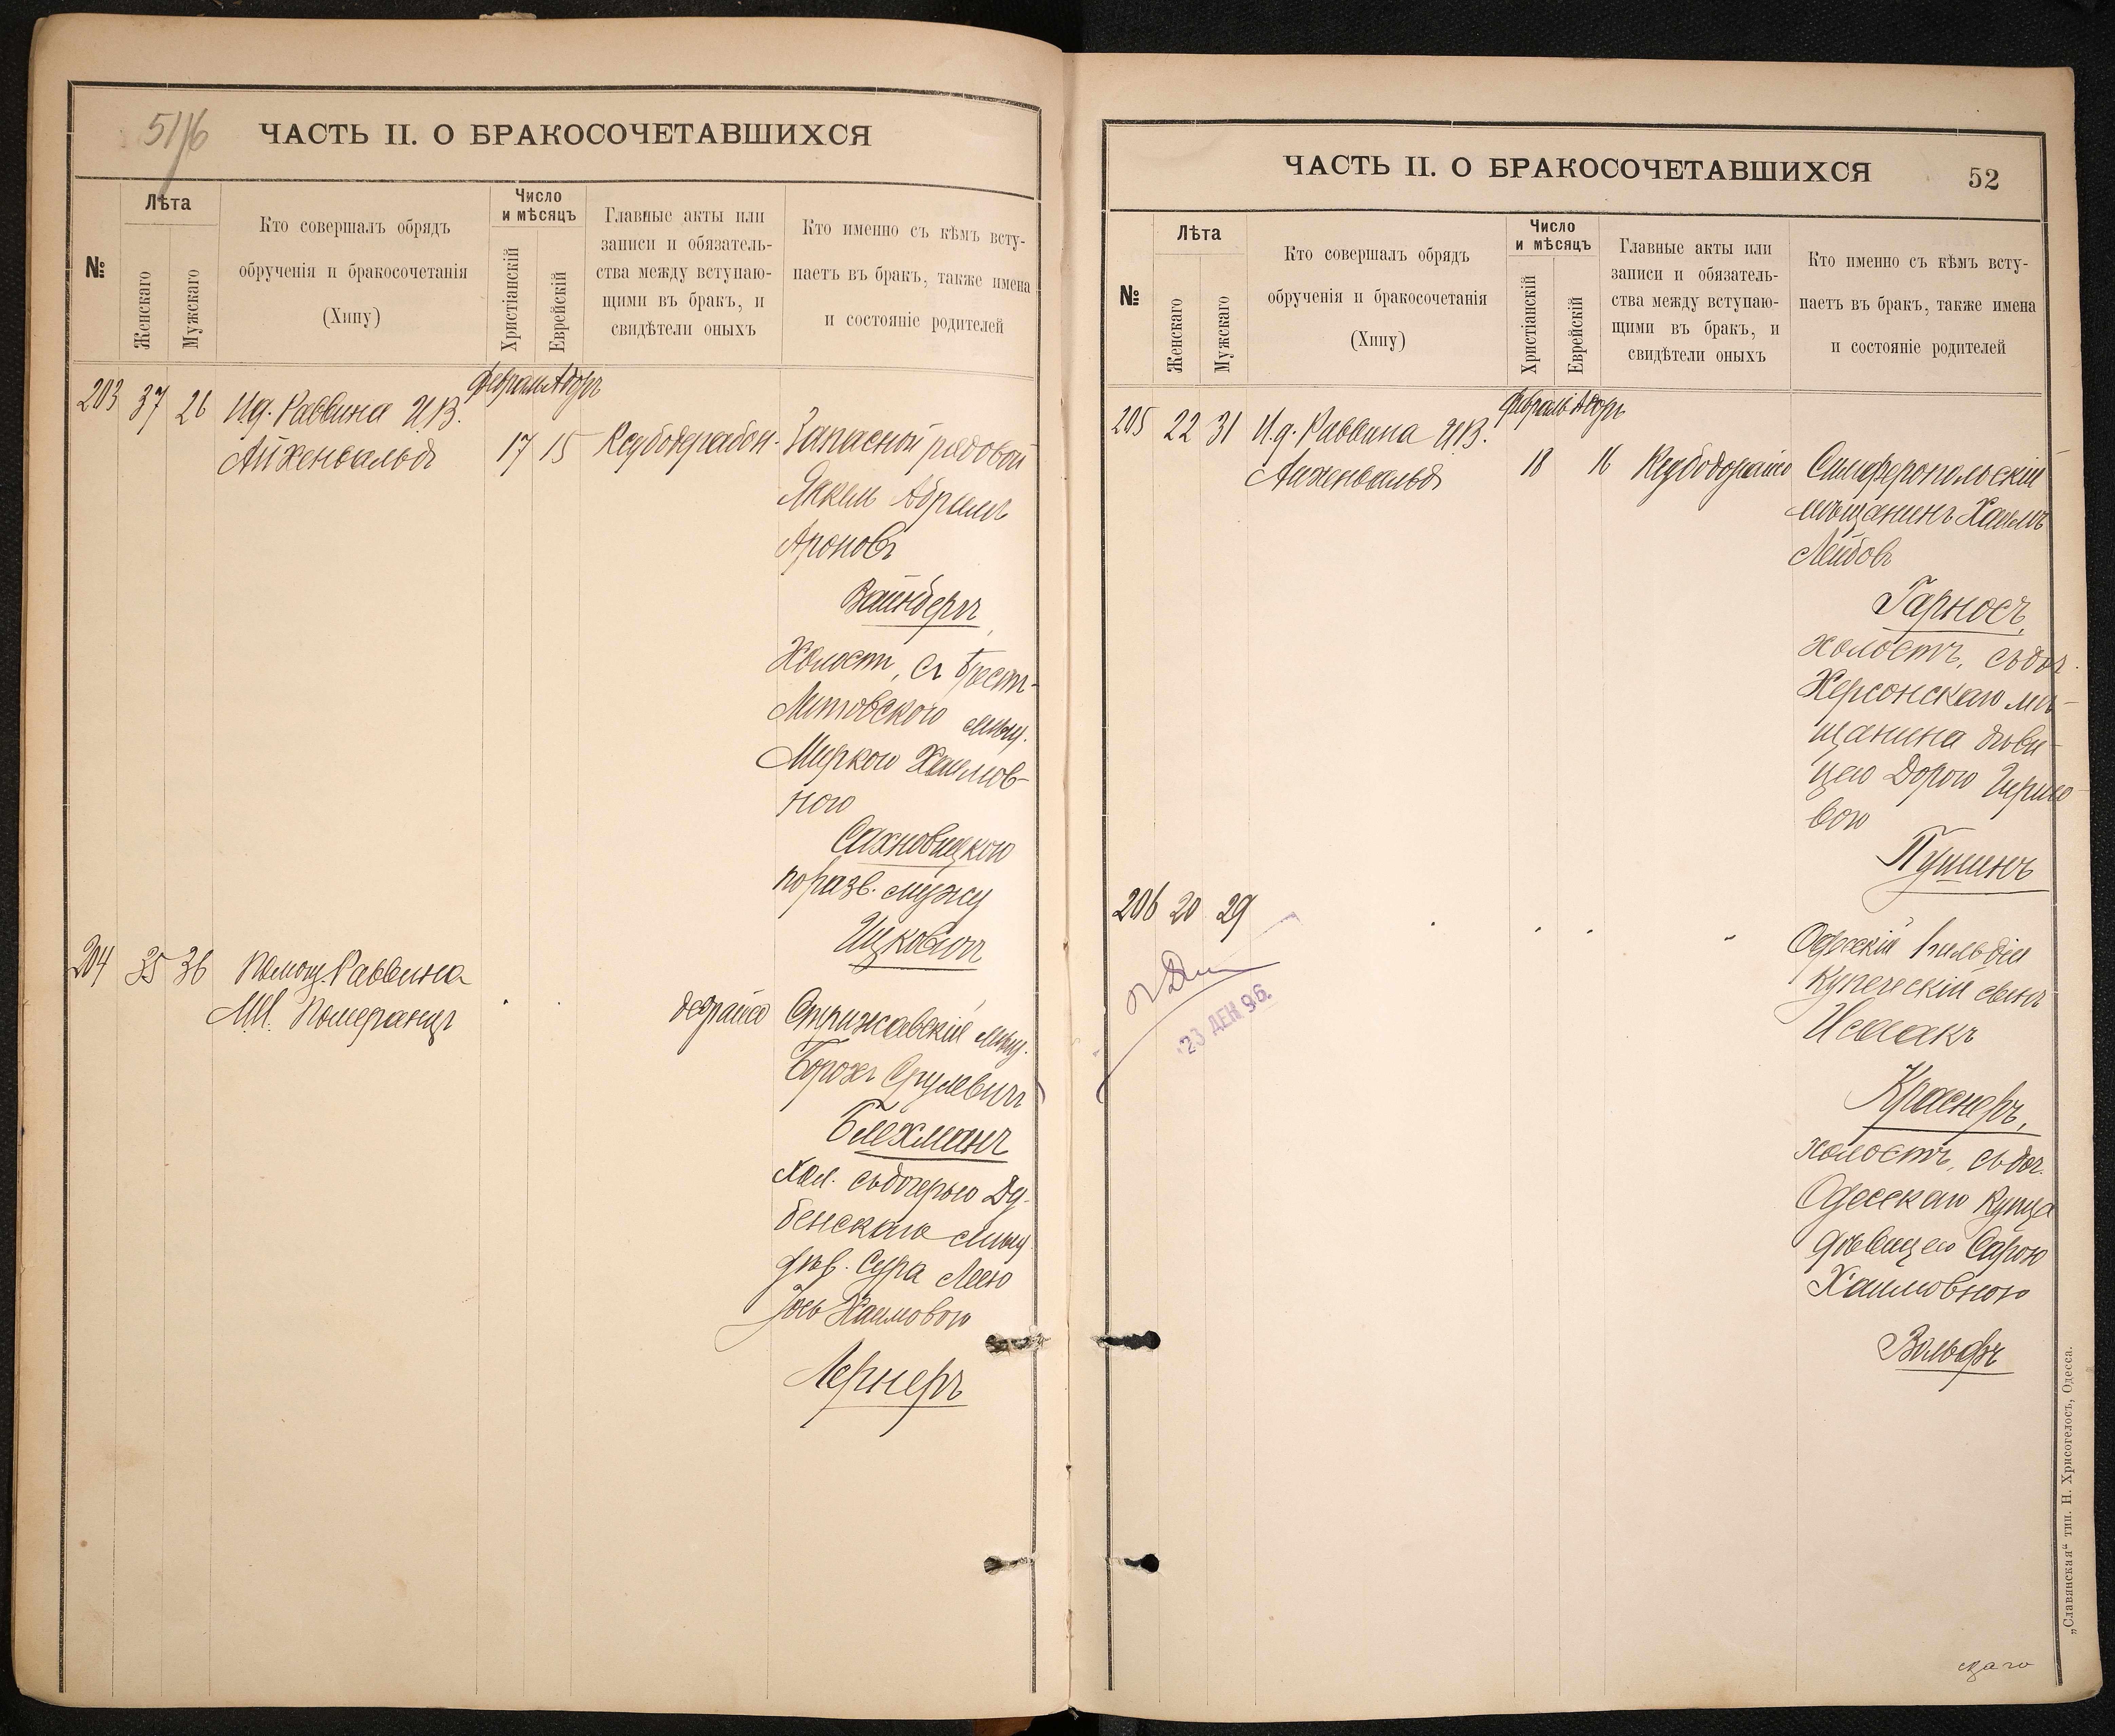 51/6
ЧАСТЬ II. О БРАКОСОЧЕТАВШИХСЯ
№
Лѣта
Женскаго
Мужскаго
Кто совершалъ обрядъ
обрученія и бракосочетанія
(Хипу)
Число
и мѣсяцъ
Христіанскій
Еврейскій
Главные акты или
записи и обязатель-
ства между вступаю-
щими въ бракъ, и
свидѣтели оныхъ
Кто именно съ кѣмъ всту-
паетъ въ бракъ, также имена
и состояніе родителей
Февраль Адоръ
203 37 26 И.д. Раввина И.В. Айхенвальдъ 17 15
Запасной рядовой
Янкель Абрамъ
Ароновъ
Вайнберъ
Холостъ, съ Брестъ-
Литовского мѣщ.
Миркою Хаимов-
ною
Сахновицкою
по разв. мужу
Ицковичъ
204 35 36 Помощ. Раввина
М.И. Померанцъ
Стрижавскій мѣщ.
Борохъ Срулевичъ
Блехманъ
хол. съ дочерью Ду-
бенскаго мѣщ.
дѣв. Сура Леею
Хаимовою
Лернеръ
ЧАСТЬ II. О БРАКОСОЧЕТАВШИХСЯ
52
№
Лѣта
Женскаго
Мужскаго
Кто совершалъ обрядъ
обрученія и бракосочетанія
(Хипу)
Число
и мѣсяцъ
Христіанскій
Еврейскій
Главные акты или
записи и обязатель-
ства между вступаю-
щими въ бракъ, и
свидѣтели оныхъ
Кто именно съ кѣмъ всту-
паетъ въ бракъ, также имена
и состояніе родителей
Февраль Адоръ
205 22 31 И.д. Раввина И.В.
Айхенвальдъ 18 16
Симферопольскій
мѣщанинъ Хаимъ
Лейбовъ
Гарносъ,
холостъ, съ доч.
Херсонскаго мѣ-
щанина дѣви-
цею Дорою
вою
206 20 29
Одесскій
Купеческій сынъ
Исаакъ
Краснеръ,
холостъ, съ доч.
Одесскаго Купца
дѣвицею Сарою
Хаимовною
Вольфъ
23 ДЕК 96.
„Славянская“ тип. Н. Хрисогелосъ, Одесса.